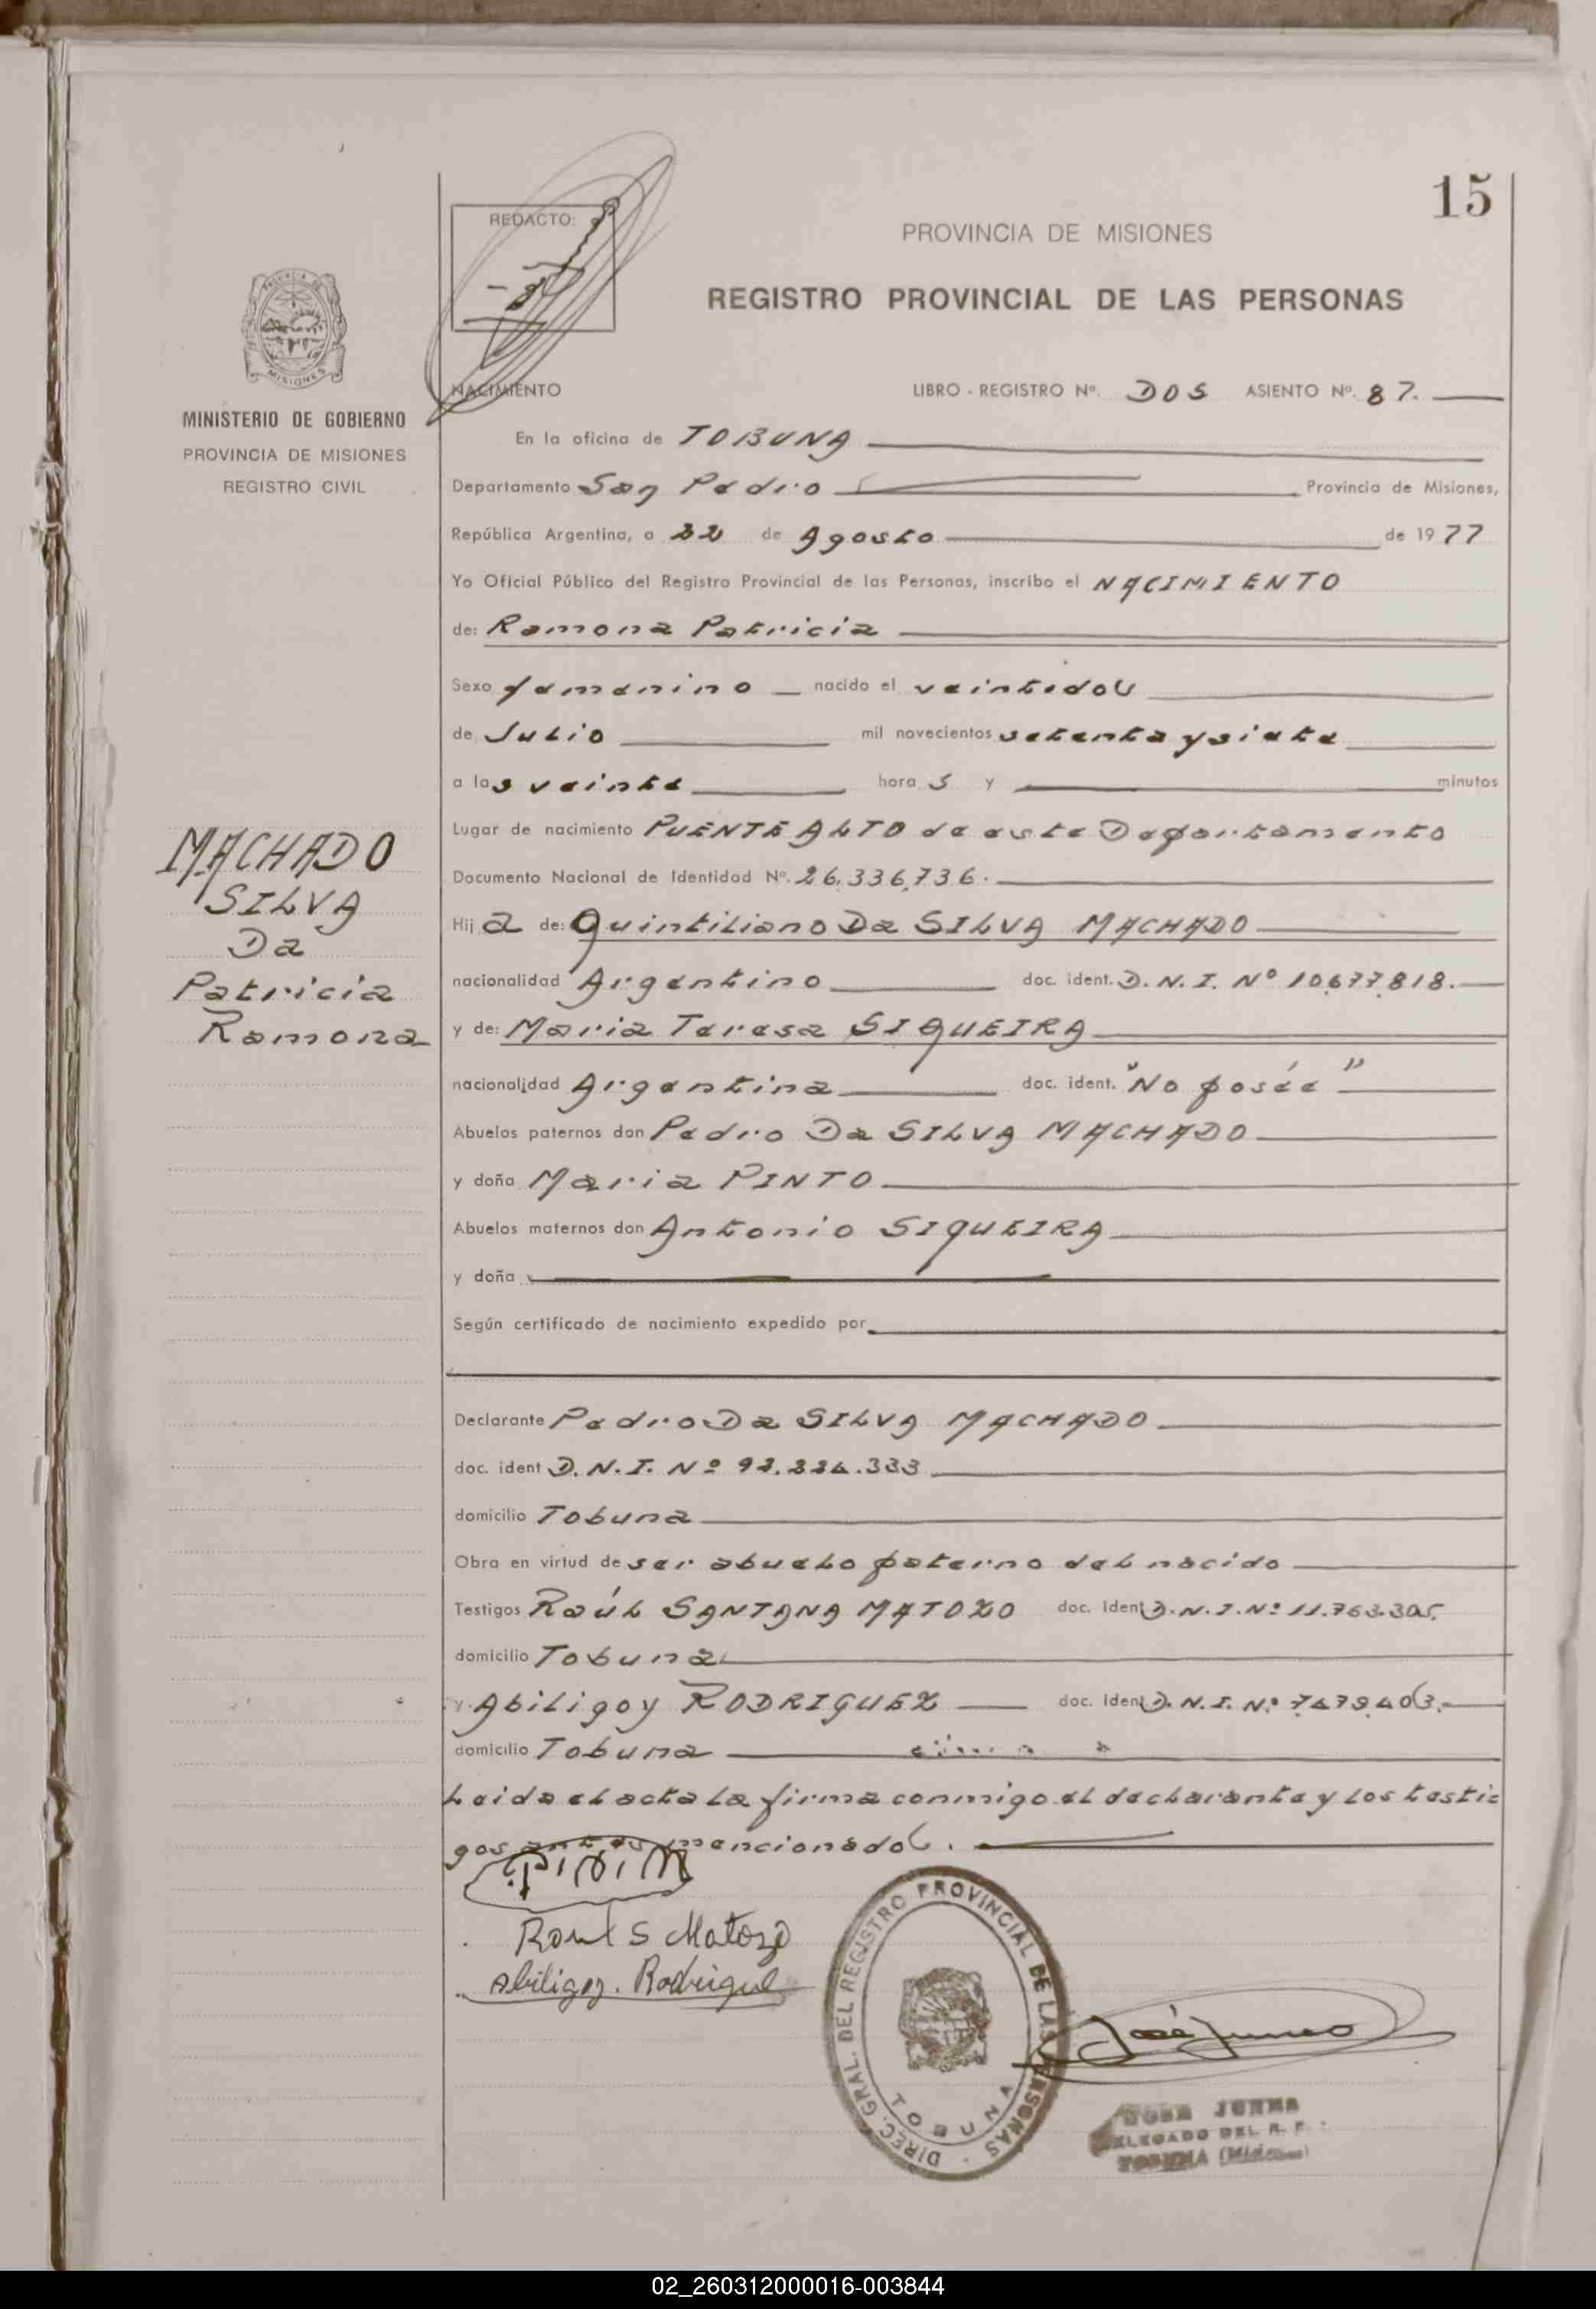 15
REDACTO:
PROVINCIA DE MISIONES
REGISTRO PROVINCIAL DE LAS PERSONAS
MINISTERIO DE GOBIERNO
PROVINCIA DE MISIONES
REGISTRO CIVIL
NACIMIENTO LIBRO - REGISTRO Nº. DOS ASIENTO Nº. 87.
En la oficina de TOBUNA
Departamento San Pedro Provincia de Misiones,
República Argentina, a 22 de Agosto de 1977
Yo Oficial Público del Registro Provincial de las Personas, inscribo el NACIMIENTO
de: Ramona Patricia
Sexo femenino nacido el veintidos
de Julio mil novecientos setenta y siete
a las veinte hora s y minutos
Lugar de nacimiento PUENTE ALTO de este Departamento
Documento Nacional de Identidad Nº. 26.336.736.
MACHADO
SILVA
Da
Patricia
Ramona
Hij a de: Quintiliano Da SILVA MACHADO
nacionalidad Argentino doc. ident. D.N.I. Nº 10.677.818.
y de: Maria Teresa SIQUEIRA
nacionalidad Argentina doc. ident. "No posée"
Abuelos paternos don Pedro Da SILVA MACHADO
y doña Maria PINTO
Abuelos maternos don Antonio SIQUEIRA
y doña
Según certificado de nacimiento expedido por
Declarante Pedro Da SILVA MACHADO
doc. ident D.N.I. Nº
domicilio Tobuna
Obra en virtud de ser abuelo paterno del nacido
Testigos Raúl SANTANA MATOZO doc. ident D.N.I. Nº 11.763.305.
domicilio Tobuna
y Abiligoy RODRIGUEZ doc. Ident D.N.I. Nº 7.479.403.
domicilio Tobuna
Leida el acta la firma conmigo el declarante y los testi
gos antes mencionados.
Raul S Matozo
Abiligoy. Rodrigue
DIREC. GRAL. DEL REGISTRO PROVINCIAL DE LAS PERSONAS
TOBUNA
José
DELEGADO DEL R. P.
TOBUNA (Misiones)
02_260312000016-003844